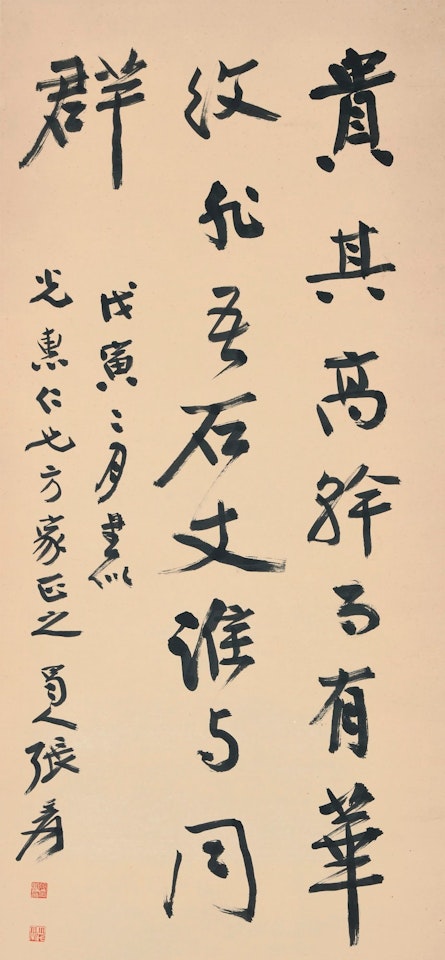 貴其高幹而有華
紋非吾石丈誰与同
群
戊寅二月書似
光惠仁兄方家正之 蜀人張爰